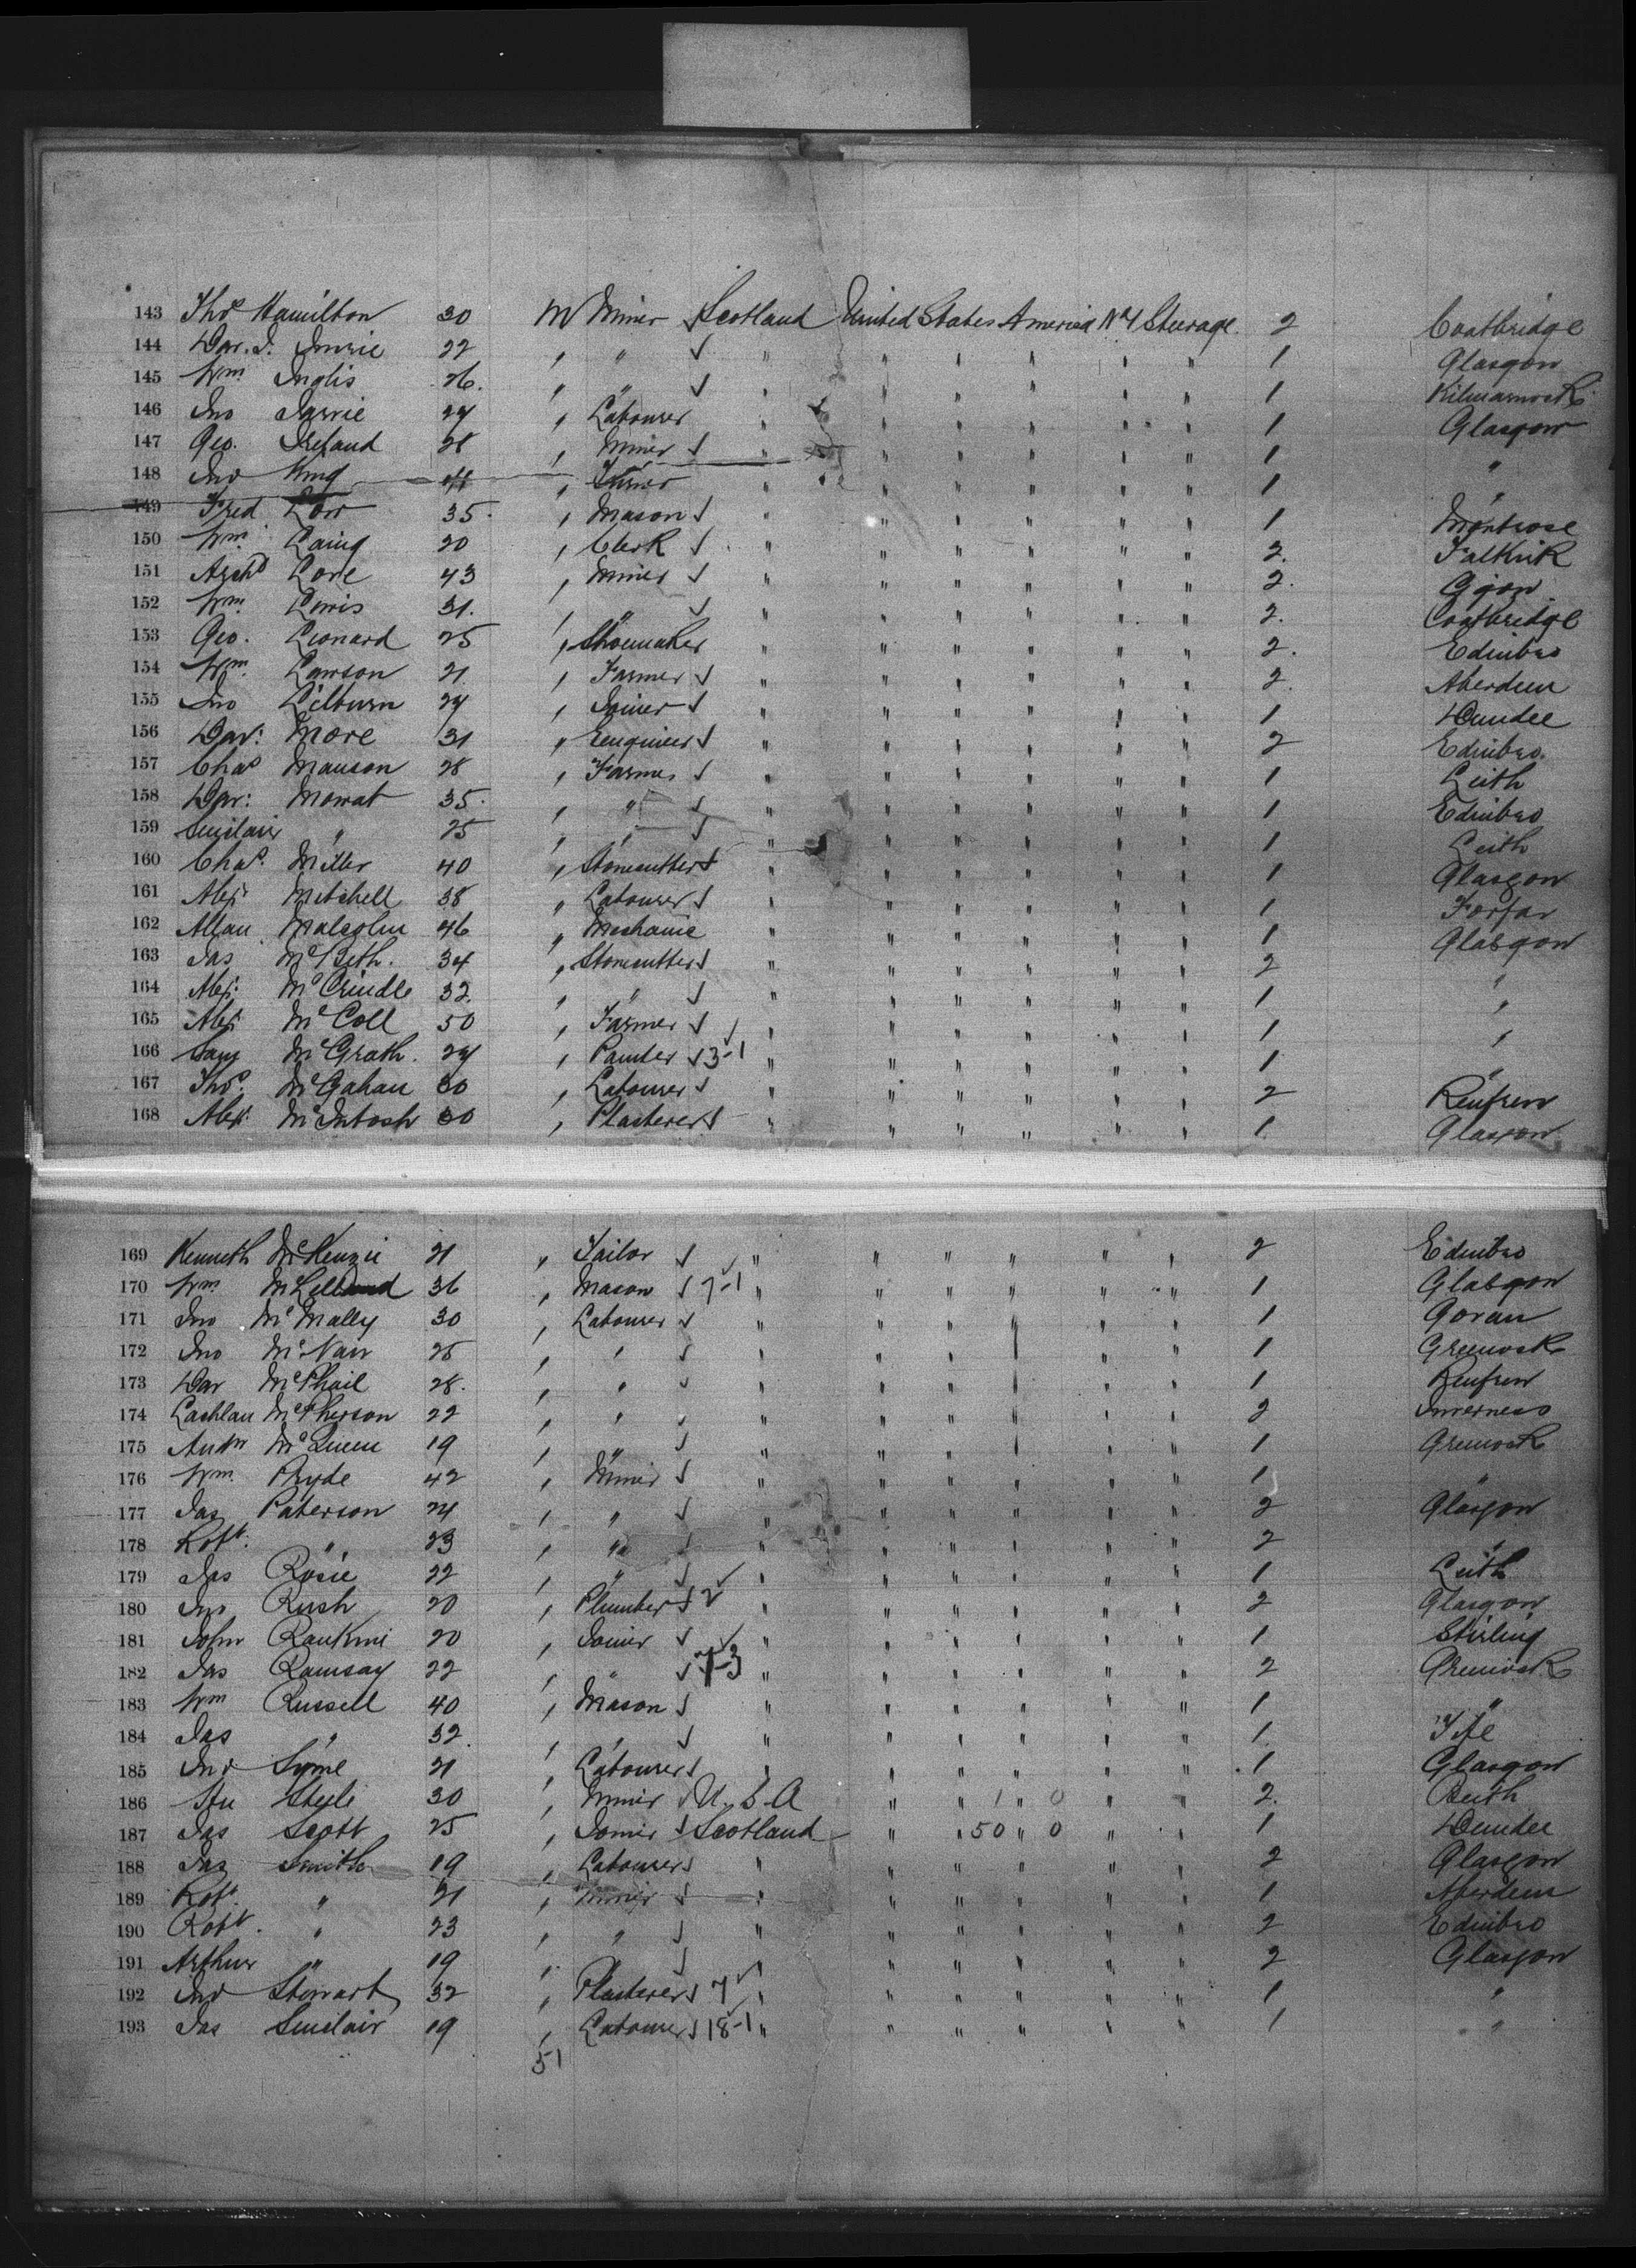 143 Thos Hamilton 30 M Miner Scotland United States America NY Steerage 2 Coatbridge
144 Dav. I. Imrie 22 " " " " " " " " 1 Glasgow
145 Wm Inglis 26. " " " " " " " " 1 Kilmarnock
146 Jno Jarvie 24 " Labourer " " " " " " 1 Glasgow
147 Geo. Ireland 28 " Miner " " " " " " 1 "
148 Jno King 41 " " " " " " " 1 "
149 Fred Low 35. " Mason " " " " " " 1 Montrose
150 Wm Laing 20 " Clerk " " " " " " 2. Falkirk
151 Archd Love 43 " Miner " " " " " " 2.
152 Wm Lewis 31. " " " " " " " " 2. Coatbridge
153 Geo. Leonard 25 " Shoemaker " " " " " " 2. Edinbro
154 Wm. Lawson 21. " Farmer " " " " " " 2. Aberdeen
155 Jno Lilburn 24 " Joiner " " " " " " 1 Dundee
156 Dav: More 31 " Engineer " " " " " " 2 Edinbro.
157 Chas Manson 28 " Farmer " " " " " " 1 Leith
158 Dav: Mowat 35. " " " " " " " " 1 Edinbro
159 Sinclair " 25 " " " " " " " " 1 Leith
160 Chas. Miller 40 " Stonecutter " " " " " " 1 Glasgow
161 Alex Mitchell 38 " Labourer " " " " " " 1 Forfar
162 Allan Malcolm 46 " Mechanic " " " " " " 1 Glasgow
163 Jas McBeth. 34 " Stonecutter " " " " " " 2 "
164 Alex. McCrindle 32. " " " " " " " " 1 "
165 Alex McColl 50 " Farmer " " " " " " 1 "
166 Saml McGrath. 24 " Painter 3-1 " " " " " " 1 "
167 Thos. McGahan 30 " Labourer " " " " " " 2 Renfrew
168 Alex. McIntosh 30 " Plasterer " " " " " " 1. Glasgow
169 Kenneth McKenzie 21 " Tailor " " " " " " 2 Edinbro
170 Wm McLelland 36 " Mason 7-1 " " " " " " 1 Glasgow
171 Jno McMally 30 " Labourer " " " " " " 1 Govan
172 Jno McNair 25 " " " " " " " " 1 Greenock
173 Dav McPhail 28. " " " " " " " " 1 Renfrew
174 Lachlan McPherson 22 " " " " " " " " 2 Inverness
175 Andw McQueen 19 " " " " " " " " 1 Greenock
176 Wm. Pryde 42 " Miner " " " " " " 1 "
177 Jas Paterson 24 " " " " " " " " 2 Glasgow
178 Robt. " 23 " " " " " " " " 2 "
179 Jas Rosie 22 " " " " " " " " 1 Leith
180 Jno Rush 20 " Plumber 2 " " " " " " 2 Glasgow
181 John Rankine 20 " Joiner " " " " " " 1 Stirling
182 Jas Ramsay 22 " " 7-3 " " " " " " 2 Greenock
183 Wm Russell 40 " Mason " " " " " " 1 "
184 Jas " 32. " " " " " " " " 1. Fife
185 Jno Syme 21 " Labourer " " " " " " 1 Glasgow
186 Steele 30 " Miner U.S.A " " 1 " 0 " " 2. Beith
187 Jas Scott 25 " Joiner Scotland " " 50 " 0 " " 1 Dundee
188 Jas Smith 19 " Labourer " " " " " " 2 Glasgow
189 Robt. " 21 " Miner " " " " " " 1 Aberdeen
190 Robt. " 23 " " " " " " " " 2 Edinbro
191 Arthur " 19 " " " " " " " 2 Glasgow
192 Jno Stewart 32 " Plasterer 7 " " " " " " 1 "
193 Jas Sinclair 19 " Labourer 18-1 " " " " " " 1 "
51